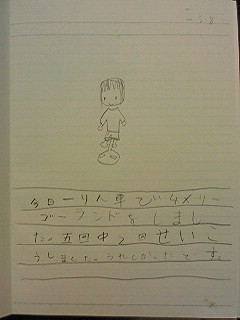 今日一りん車でい4メリー
ゴーランドをしまし
た。五回中2回せいこ
うしました。うれしかったで す。